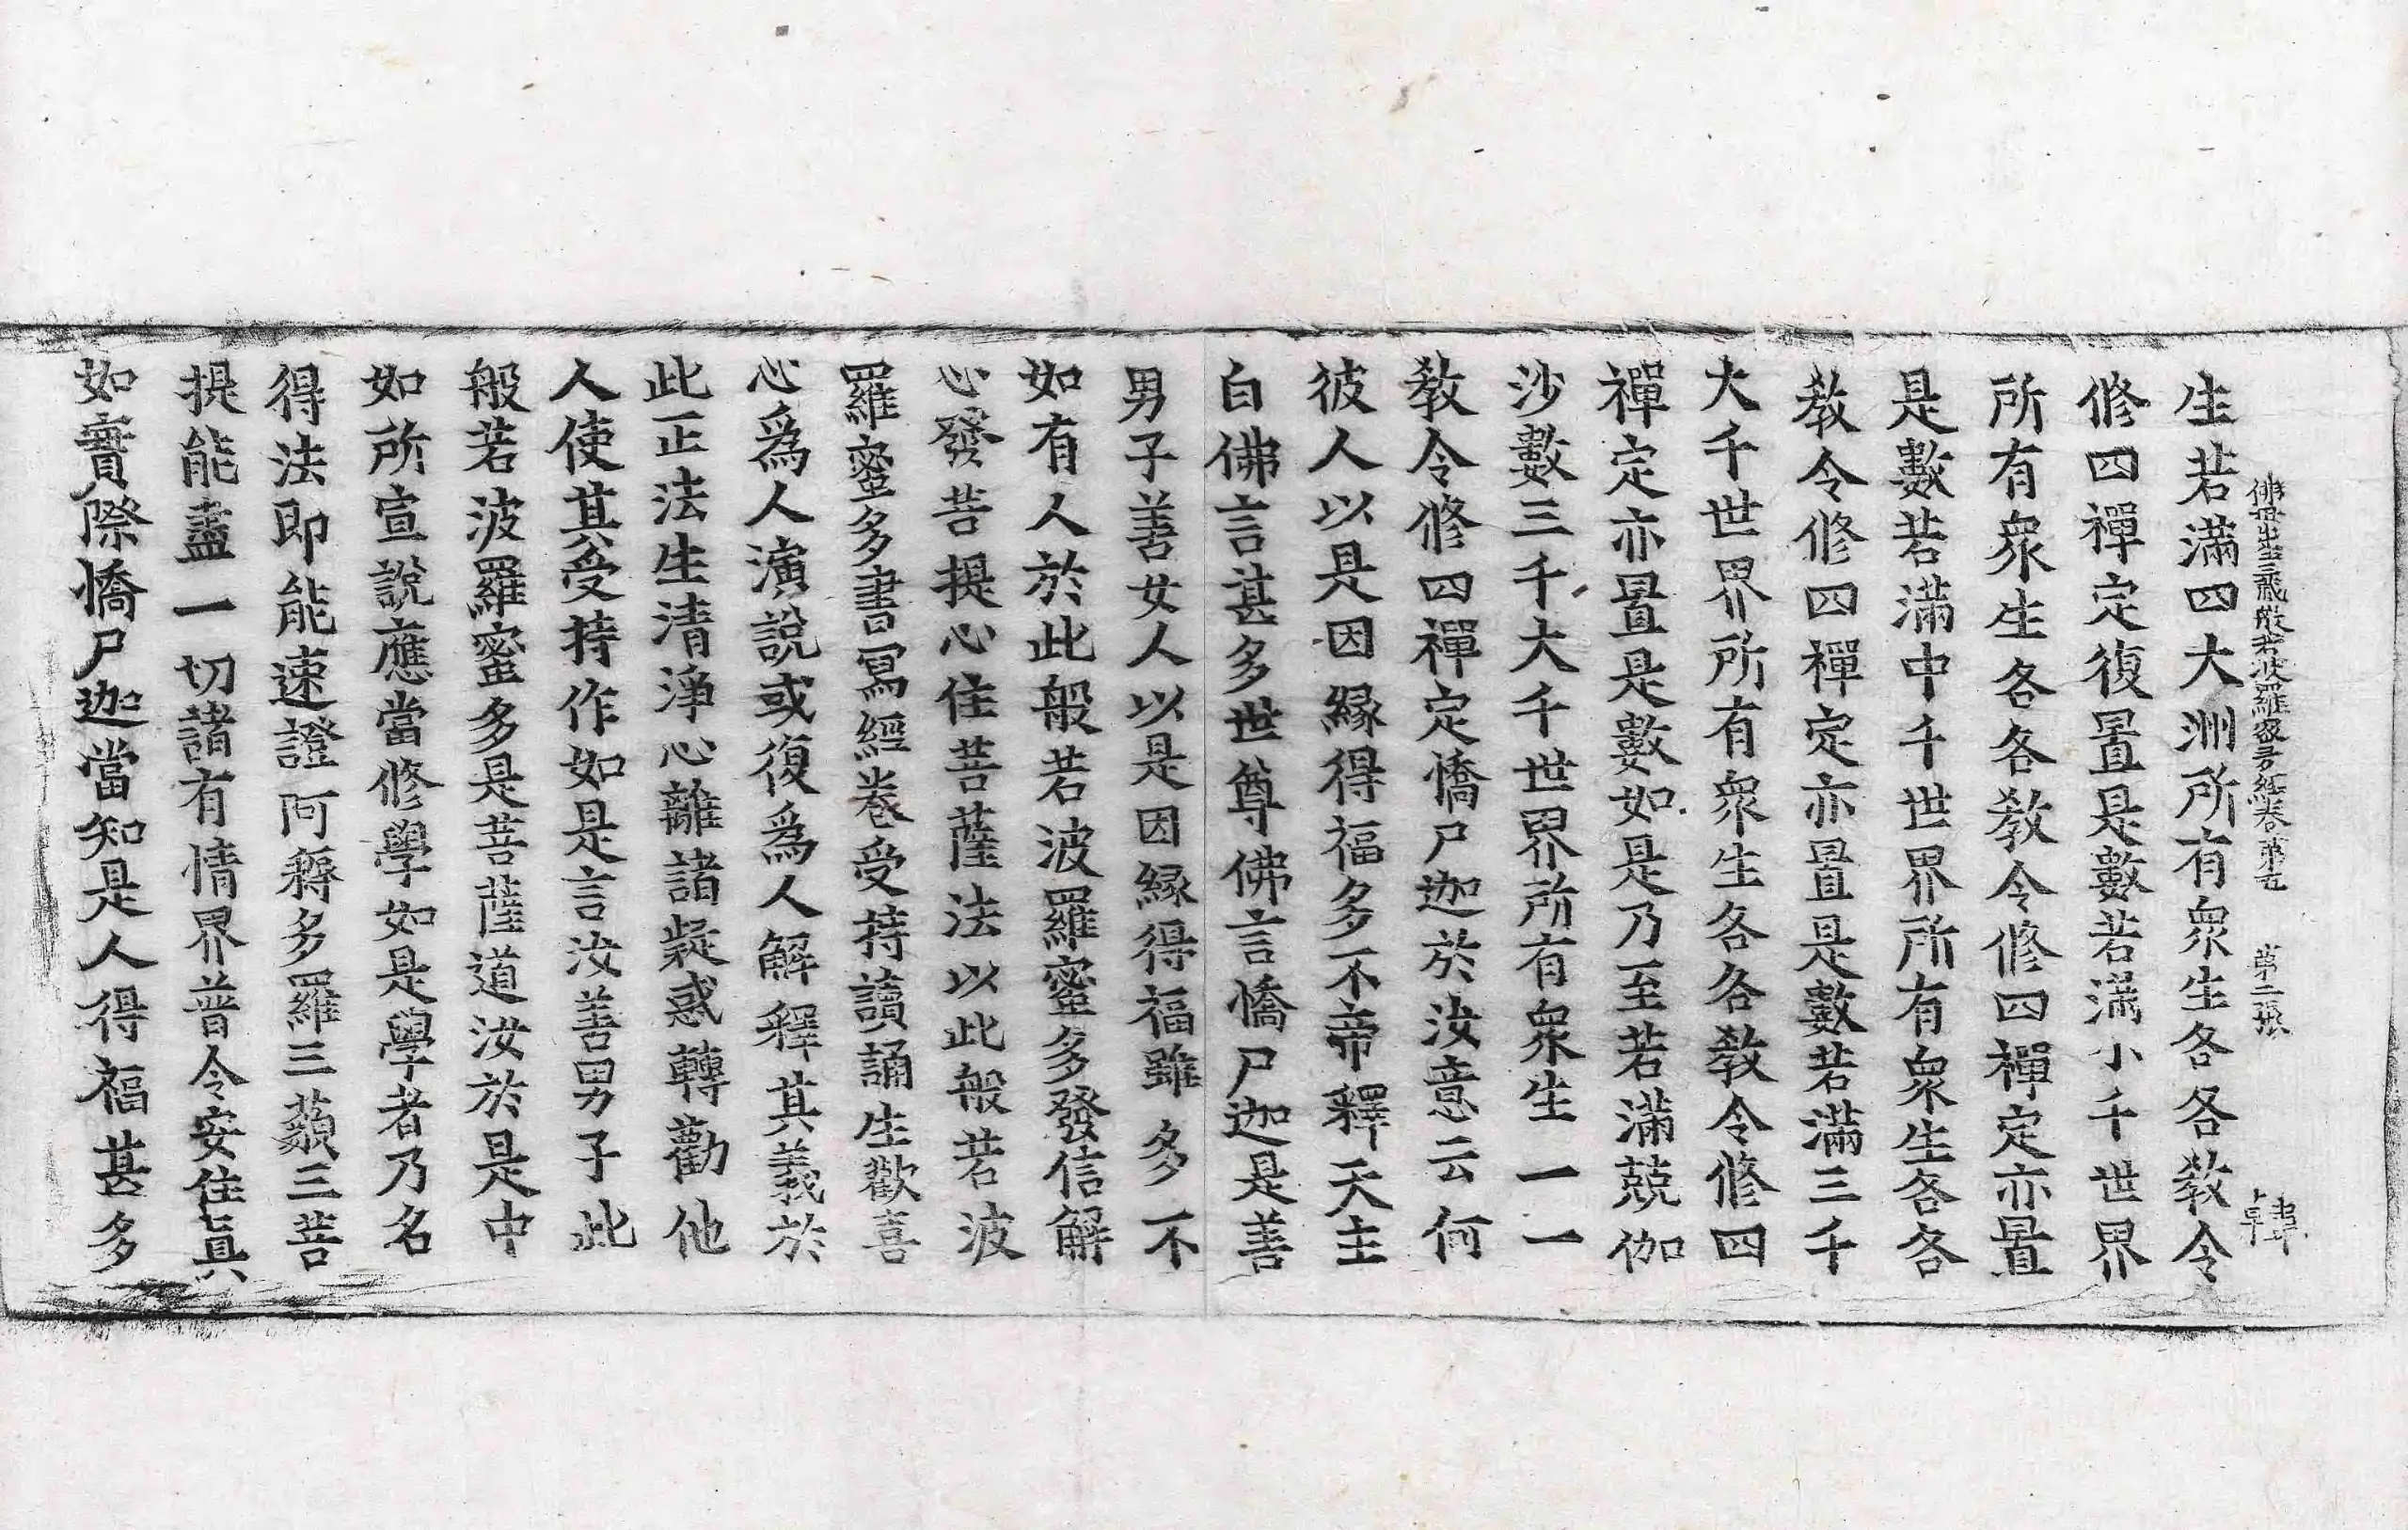 佛母出生三藏般若波羅蜜多經卷第五　第二張　韓
生若滿四大洲所有衆生各各敎令
修四禪定復置是數若滿小千世界
所有衆生各各敎令修四禪定亦置
是數若滿中千世界所有衆生各各
敎令修四禪定亦置是數若滿三千
大千世界所有衆生各各敎令修四
禪定亦置是數如是乃至若滿兢伽
沙數三千大千世界所有衆生一一
敎令修四禪定憍尸迦於汝意云何
彼人以是因緣得福多不帝釋天主
白佛言甚多世尊佛言憍尸迦是善
男子善女人以是因緣得福雖多不
如有人於此般若波羅蜜多發信解
心發菩提心住菩薩法以此般若波
羅蜜多書寫經卷受持讀誦生歡喜
心爲人演說或復爲人解釋其義於
此正法生清淨心離諸疑惑轉勸他
人使其受持作如是言汝善男子此
般若波羅蜜多是菩薩道汝於是中
如所宣說應當修學如是學者乃名
得法即能速證阿耨多羅三藐三菩
提能盡一切諸有情界普令安住眞
如實際憍尸迦當知是人得福甚多